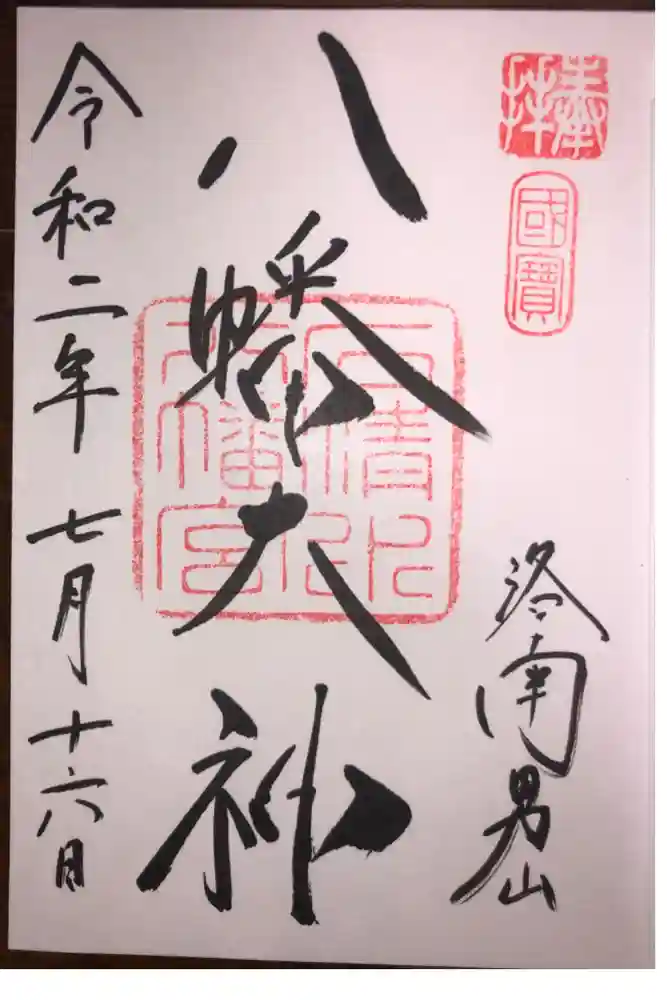 奉拝
國寶
洛南男山
八幡大神
石清水
八幡宮
令和二年七月十六日